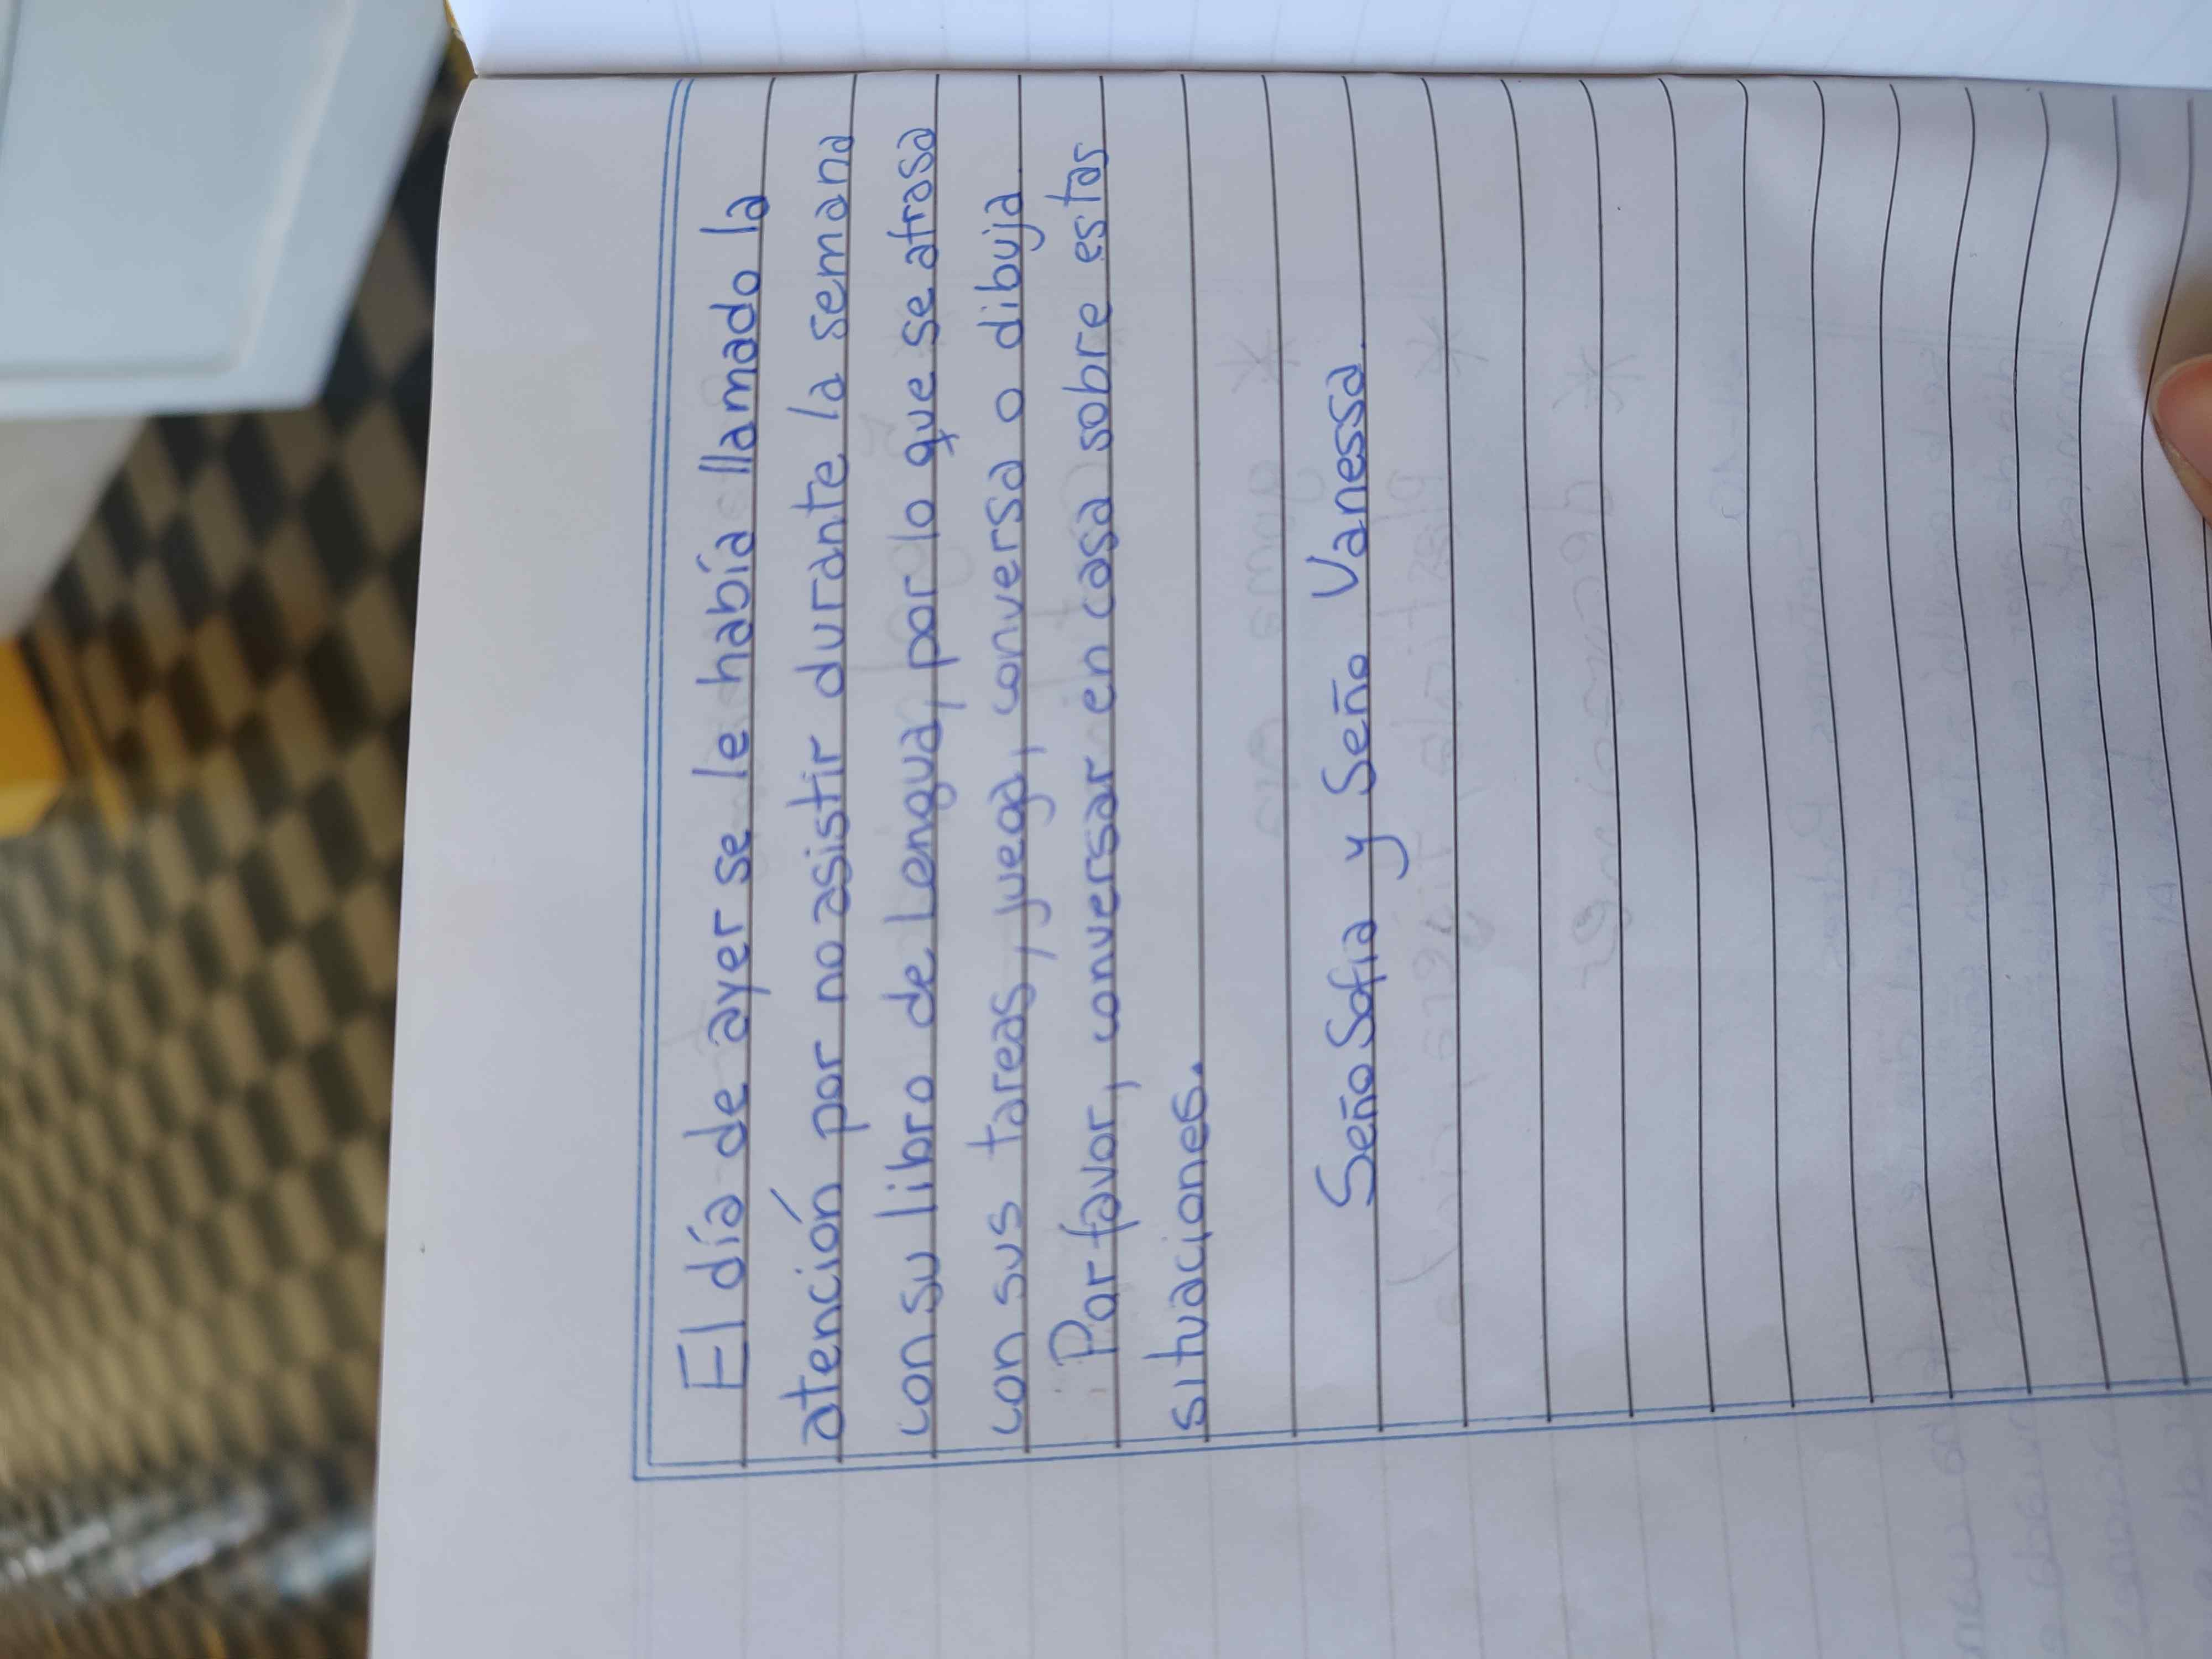 El día de ayer se le había llamado la
atención por no asistir durante la semana
con su libro de Lengua, por lo que se atrasa
con sus tareas, juega, conversa o dibuja.
Por favor, conversar en casa sobre estas
situaciones.
Seño Sofia y Seño Vanessa.